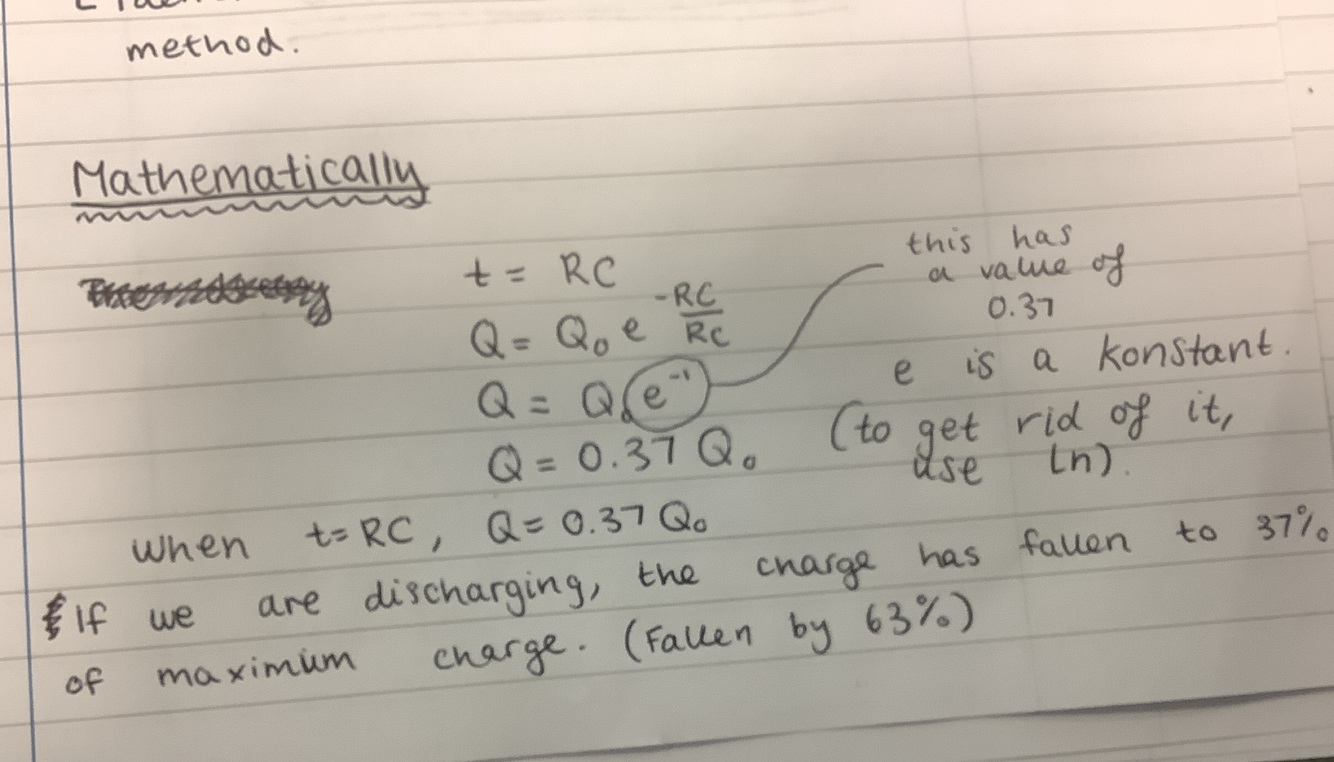 method.
Mathematically
t = RC
this has
a value of
0.37
Q = Q₀ e^(-RC/RC)
Q = Q₀ e⁻¹
e is a konstant.
(to get rid of it,
use Ln).
Q = 0.37 Q₀
When t=RC, Q = 0.37 Q₀
If we are discharging, the charge has fallen to 37%
of maximum charge. (Fallen by 63%)